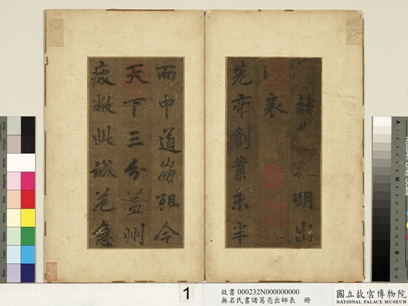 諸葛孔明出
表
先帝創業未半
而中道崩殂今
天下三分益州
疲敝此誠危急
1
故書000232N000000000
無名氏書諸葛亮出師表 冊
國立故宮博物院
NATIONAL PALACE MUSEUM